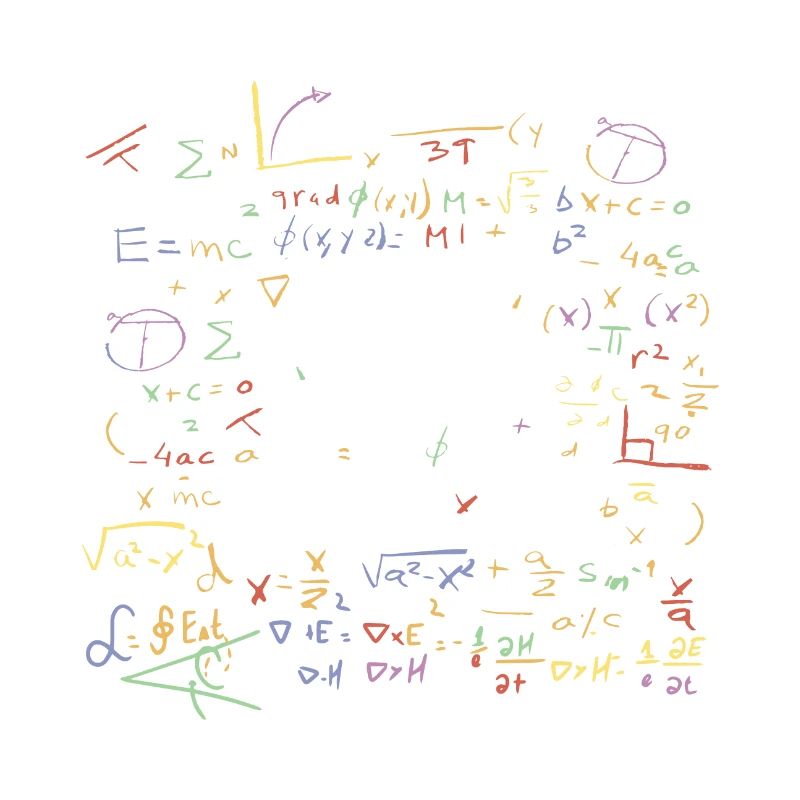 Σ N
x 3T (y
a
2 grad φ(x,y) M = √3/3 b x+c=0
E = mc φ(x,y 2)= M1 + b² - 4ac = a
+ x ∇
(x) x (x²)
a
Σ -π r² x₁/2
x+c=0 2
∂ φ c
∂ d
2 + 90
( -4ac a = φ d
x mc x b a
x )
√a²-x² 2 d x = x/2 √a²-x² + a/2 Sin⁻¹ x/a
2 2
L = ∮ E∆t ∇ +E = ∇xE = - 1/e ∂H/∂t — a%c
∇·H ∇×H ∇×H = 1/e ∂E/∂t